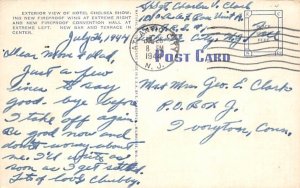 EXTERIOR VIEW OF HOTEL CHELSEA SHOW-
ING NEW FIREPROOF WING AT EXTREME RIGHT
AND NEW FIREPROOF CONVENTION HALL AT
EXTREME LEFT. NEW BAR AND TERRACE IN
CENTER.
July 26, 1944
Dear Mom & Dad
Just a few
lines to say
good bye before
I take off again.
Be good now and
don't worry about
me. I'll write as
soon as I get settled.
Lots of love Chubby.
Sgt Charles V. Clark
N. J.
8 PM
POST CARD
Mr & Mrs Geo E. Clark
P.O. Box J.
Ivoryton, Conn.